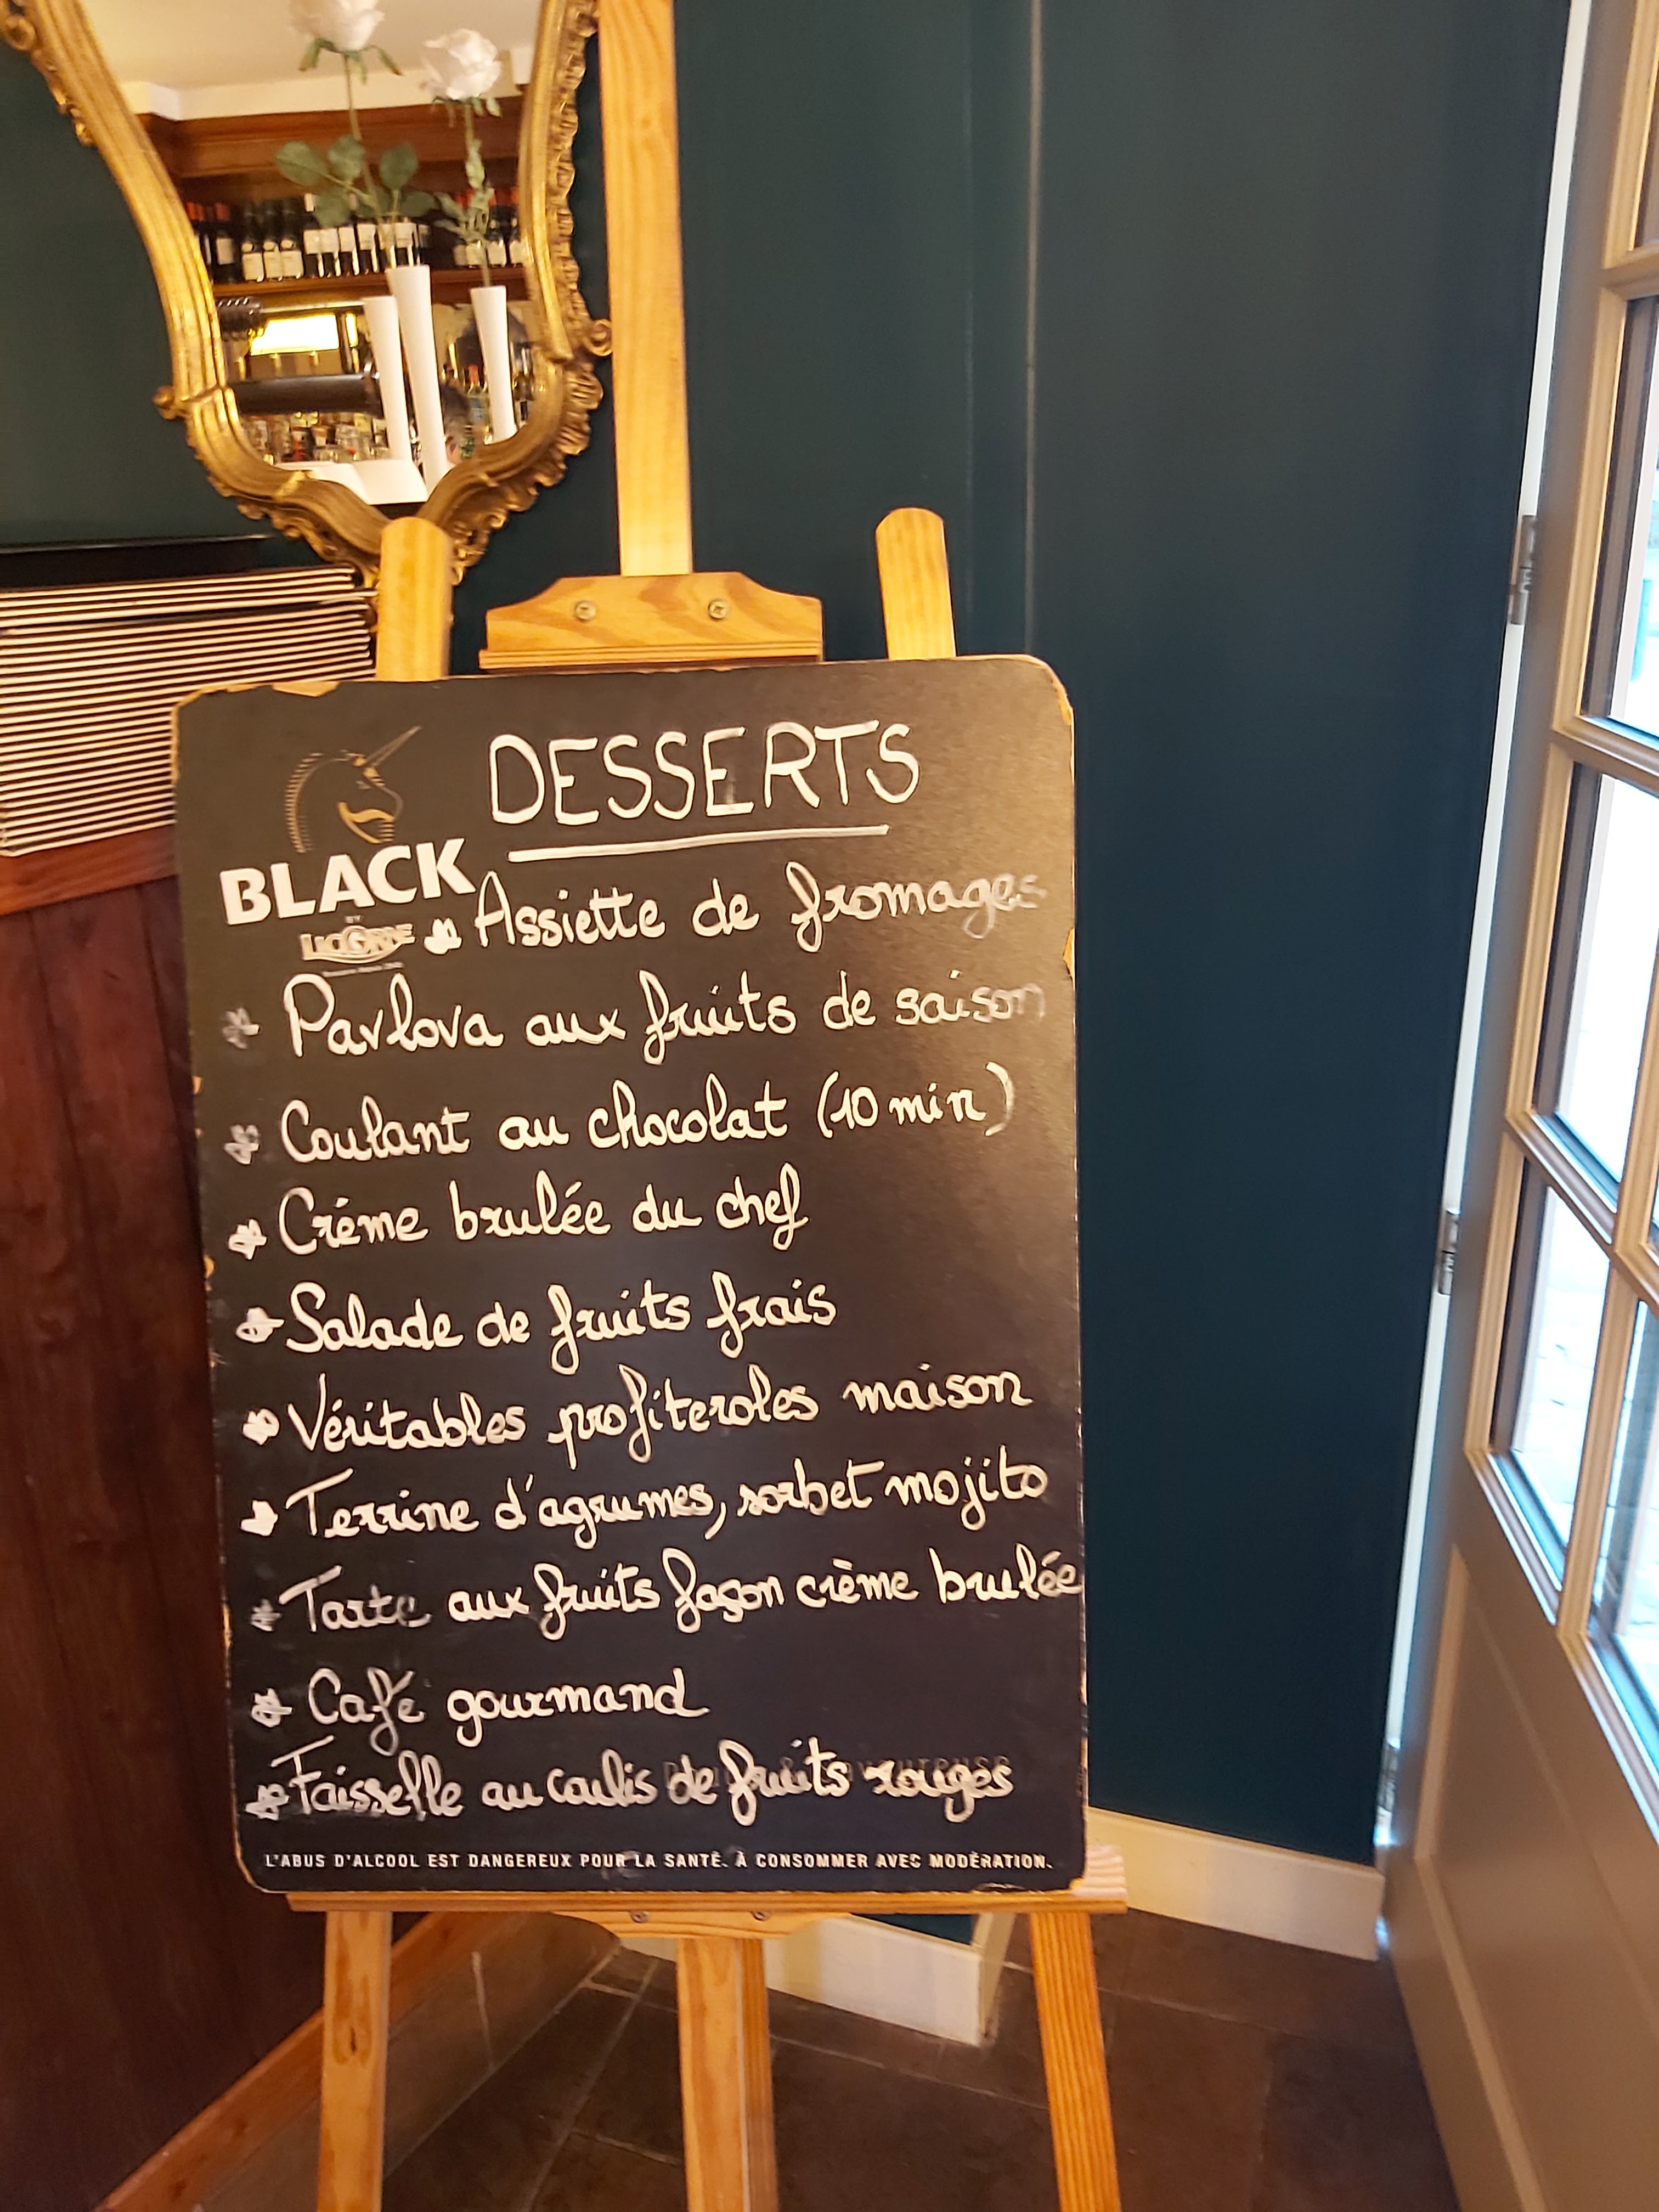 DESSERTS
BLACK
BY
LICORNE
Assiette de fromages
Pavlova aux fruits de saison
Coulant au chocolat (10 min)
Créme brulée du chef
Salade de fruits frais
Véritables profiteroles maison
Terrine d'agrumes, sorbet mojito
Tarte aux fruits façon crème brulée
Café gourmand
Faisselle au coulis de fruits rouges
L'ABUS D'ALCOOL EST DANGEREUX POUR LA SANTÉ. À CONSOMMER AVEC MODÉRATION.